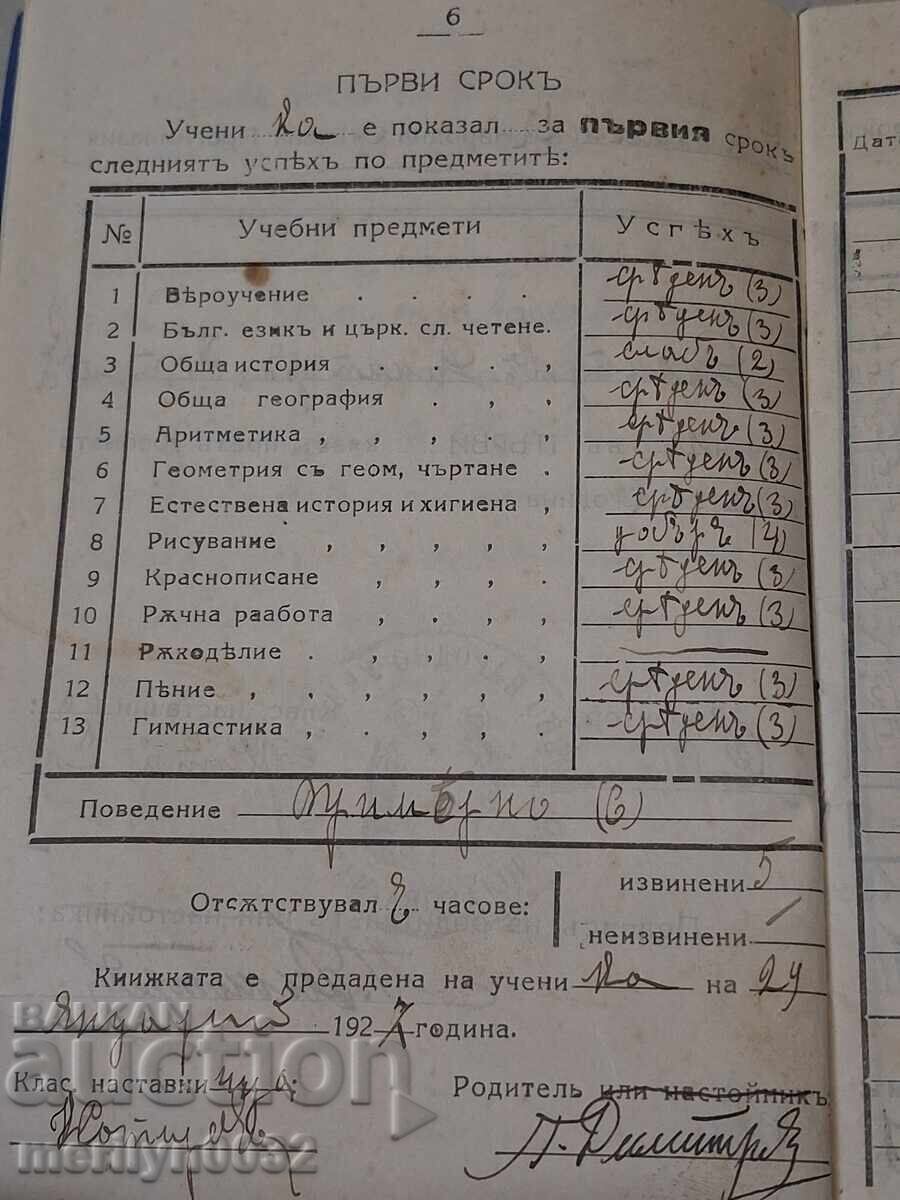 6
ПЪРВИ СРОКЪ
Учени ка е показал за първия срокъ
следниятъ успѣхъ по предметитѣ:
№ Учебни предмети Усгѣхъ
1 Вѣроучение . . . . срѣденъ (3)
2 Бълг. език и църк. сл. четене. срѣденъ (3)
3 Обща история . . . , слабъ (2)
4 Обща география . , , срѣденъ (3)
5 Аритметика , , , . , срѣденъ (3)
6 Геометрия съ геом, чъртане . срѣденъ (3)
7 Естествена история и хигиена , срѣденъ (3)
8 Рисуване , , , , , добъръ (4)
9 Краснописане , , , . срѣденъ (3)
10 Рѫчна раабота , . , , срѣденъ (3)
11 Рѫкодѣлие . , , . ,
12 Пѣние , , , , , , срѣденъ (3)
13 Гимнастика , . , . , срѣденъ (3)
Поведение примѣрно (6)
Отсѫтствувал часове:
извинени 5
неизвинени
Книжката е предадена на учени ка на 24
Януарий 1927 година.
Клас. наставни
Родитель или настойникъ
П. Димитр
Дат
BALKAN
auction
merilyn0032